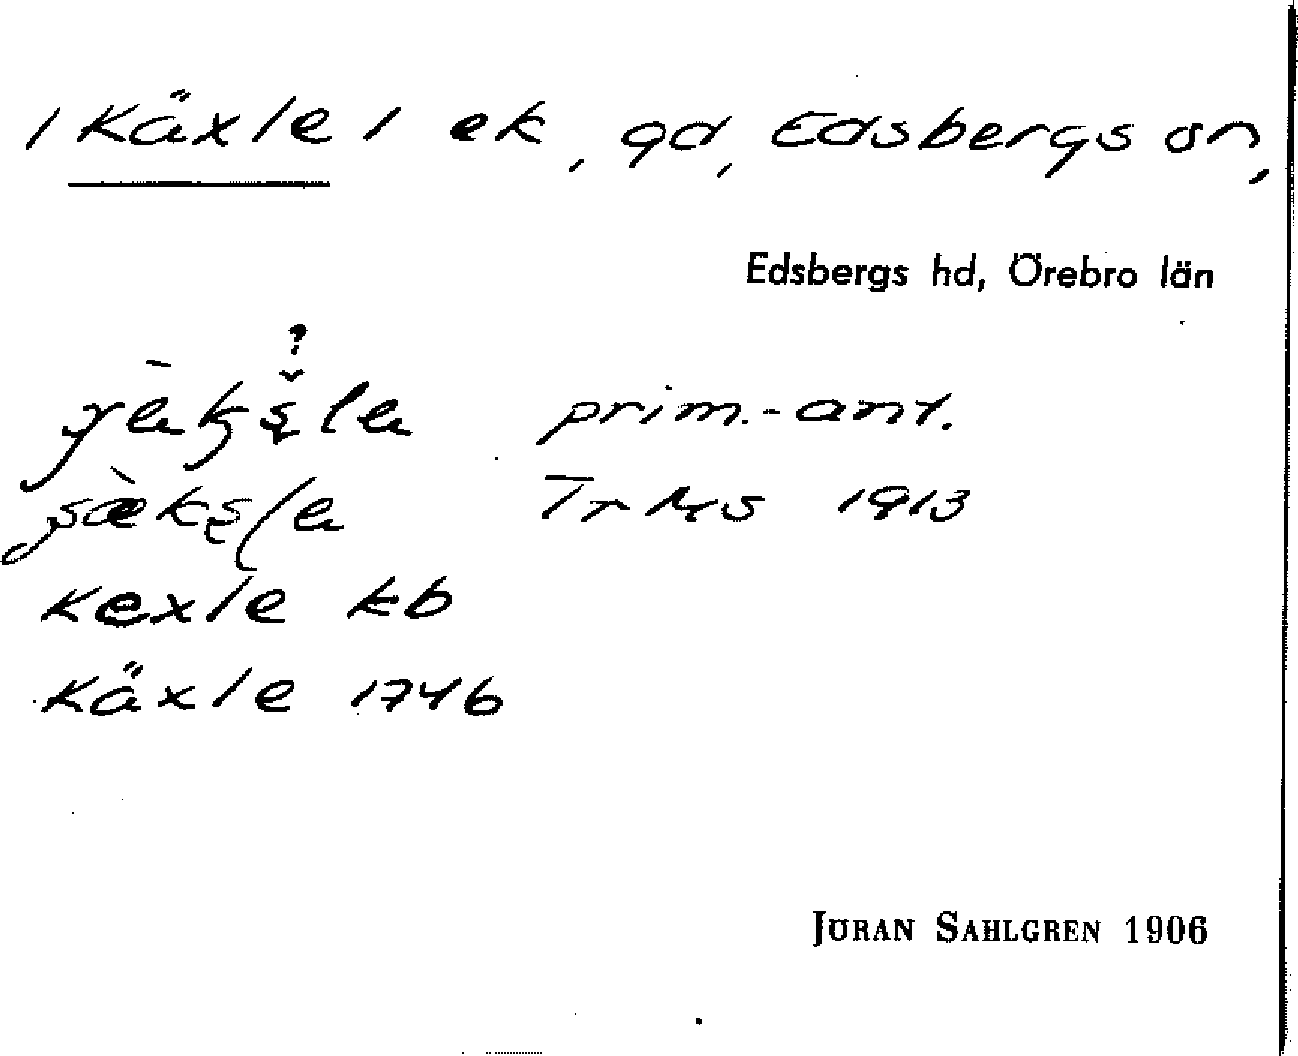 / Käxle / ek, gd, Edsbergs sn,
Edsbergs hd, Örebro län
prim.-ant.
1913
Kexle kb
Käxle 1746
JÖRAN SAHLGREN 1906